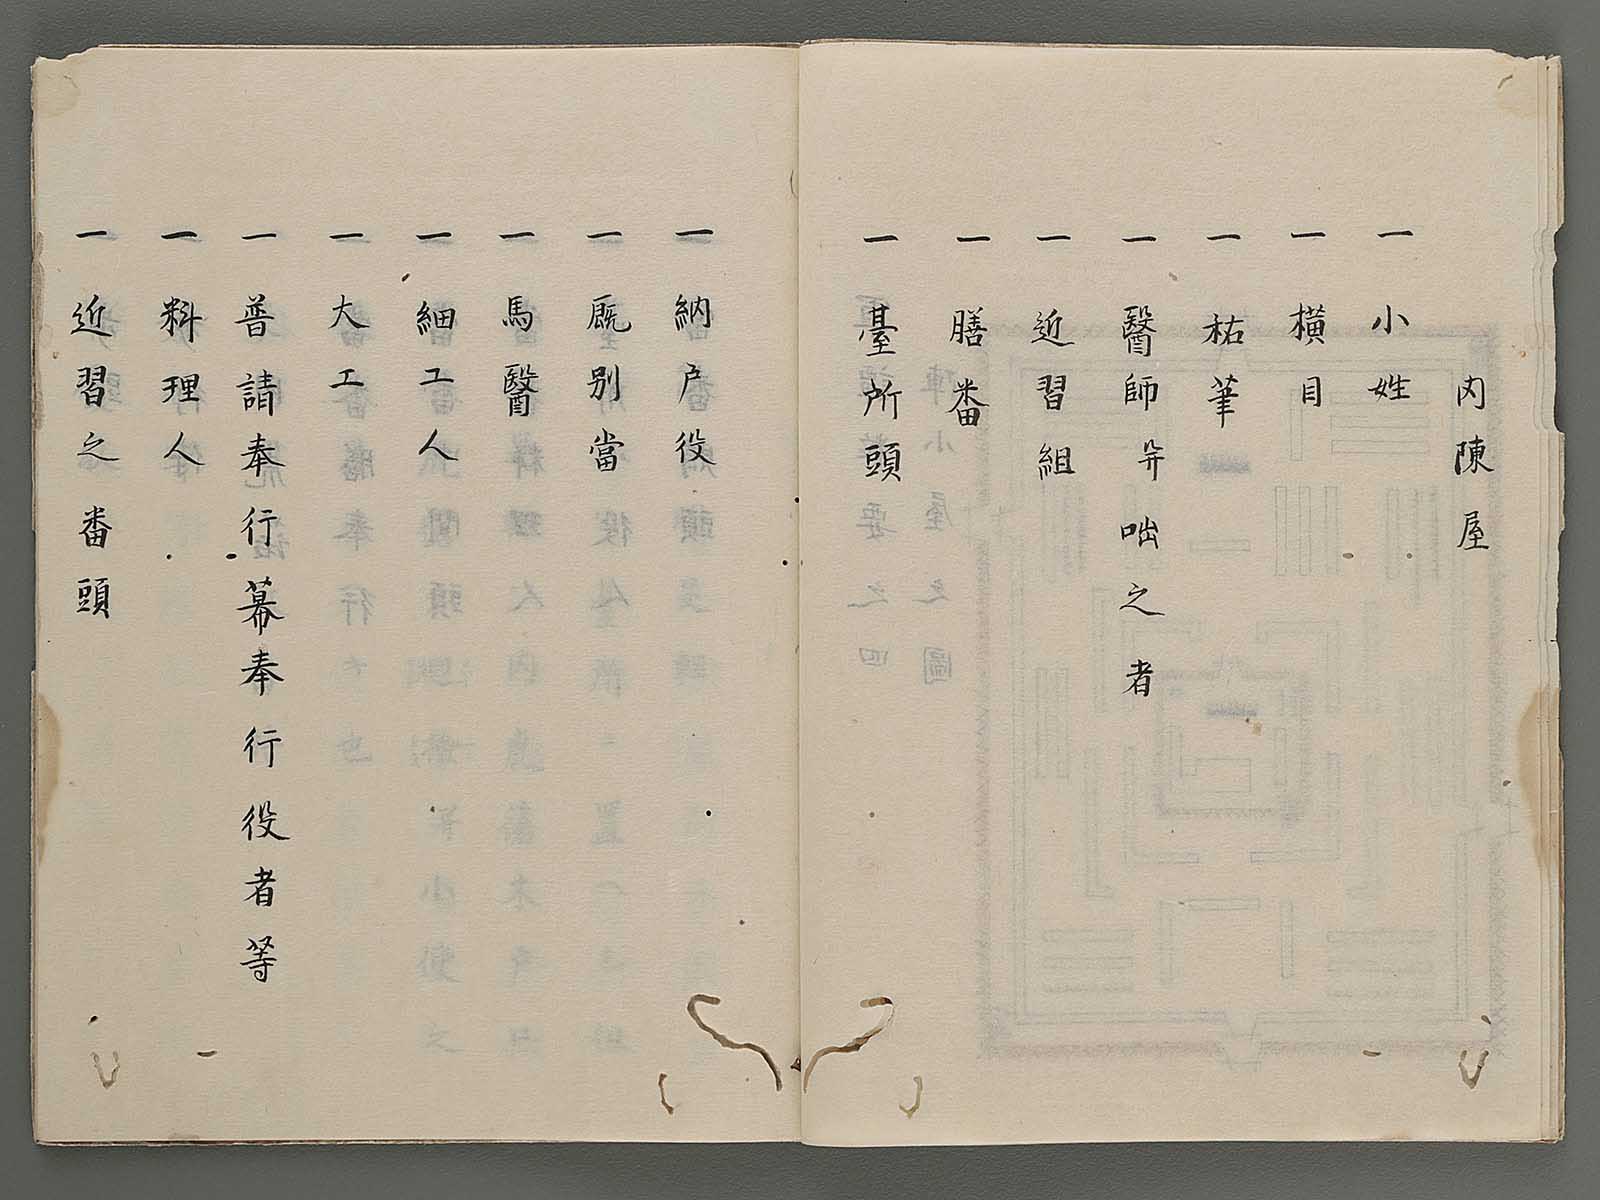 内陳屋
一 小姓
一 横目
一 祐筆
一 醫師并咄之者
一 近習組
一 膳番
一 臺所頭
一 納戸役
一 厩別當
一 馬醫
一 細工人
一 大工
一 普請奉行幕奉行役者等
一 料理人
一 近習之番頭